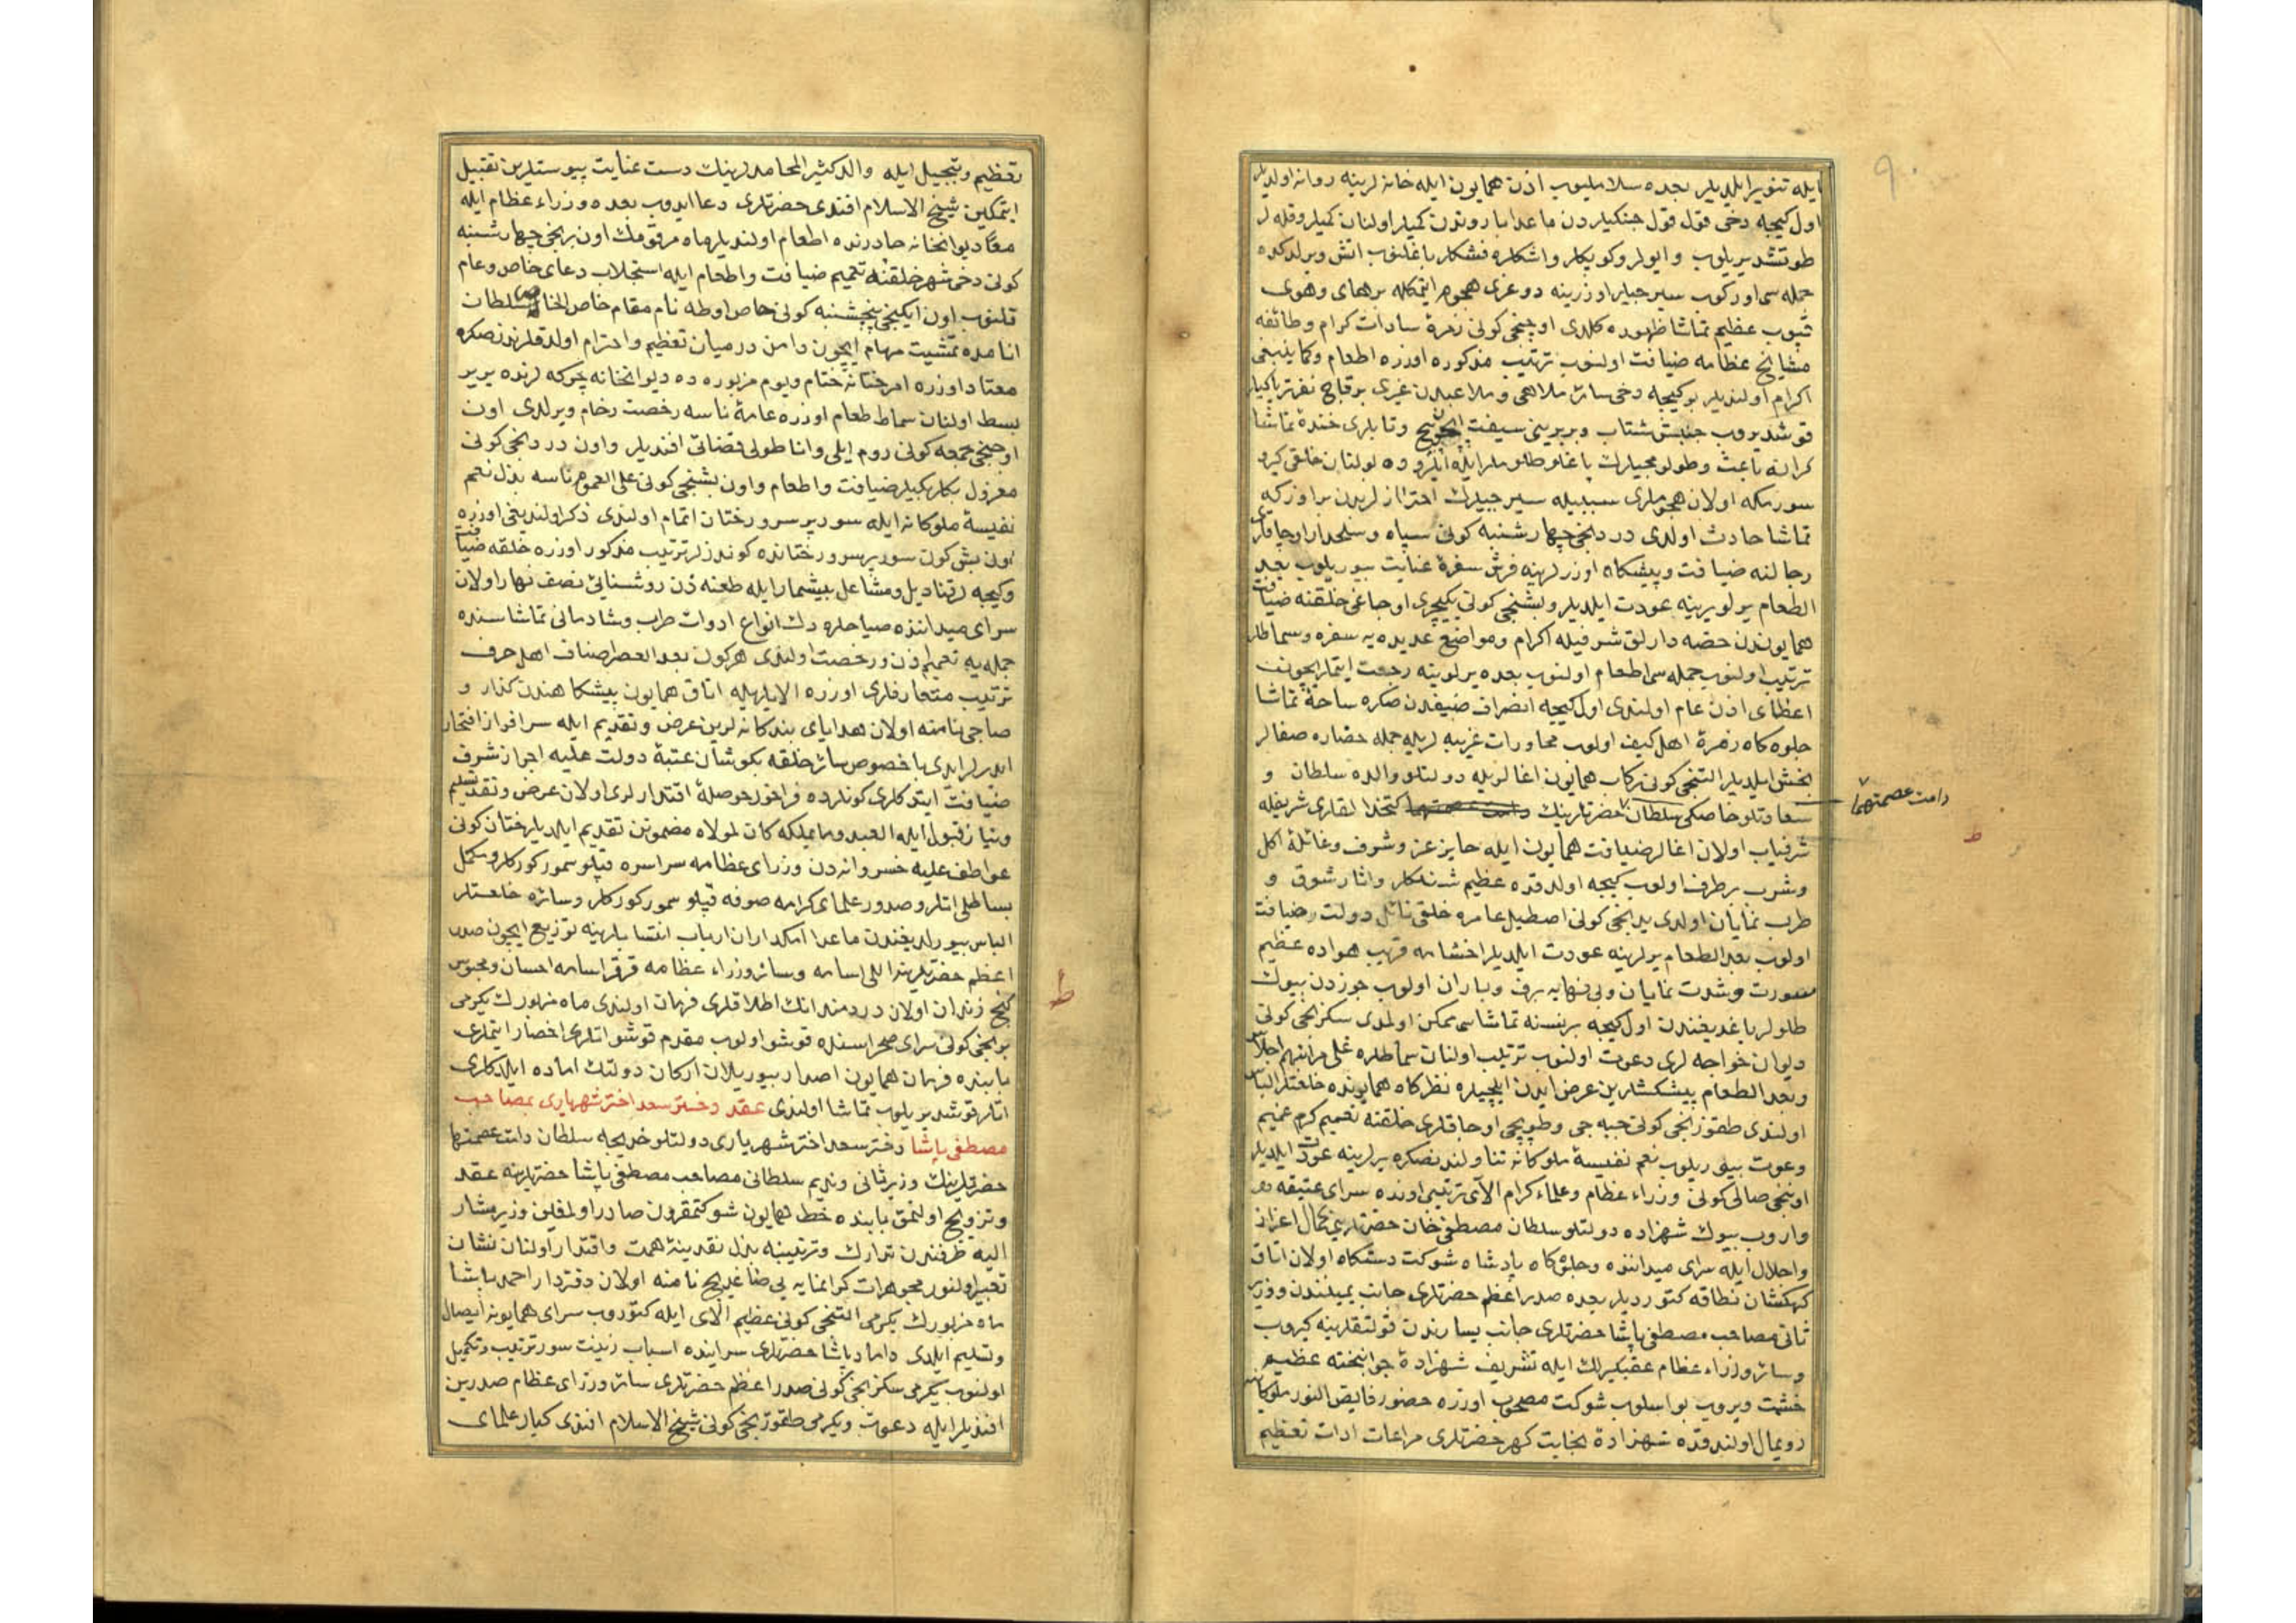 ايله تنوير ايلديلر بعده سلاملیوب اذن همايون ايله خانه لرينه روانه اولديلر
اول كيجه دخی قول قول جنكيلردن ماعدا باروتدن كميلر اولنان كميلر و قله لر
طوتشديريلوب و ايولر و كوپكلر و اشكلره فشكلر باغلنوب اتش ويرلدكده
جمله سی اوركوب سيرجيلر اوزرينه دوغری هجوم ايتمكله برهمای وهوی
قپوب عظيم تماشا ظهوره كلدی اوچنجی كونی زمرۀ سادات كرام و طائفه
مشايخ عظامه ضيافت اولنوب ترتيب مذكوره اوزره اطعام و كما ينبغی
اكرام اولنديلر بو كيجه دخی سائر ملاهی و ملاعبدن غيری بر قاچ نفر ترياكيلر
قوشديروب جنبش شتاب و بربرينی سيفت ايچون و تابلری خندۀ تماشا
كرانه باعث و طولومجيلرك ياغلو طلوملر ايله اثر و ده بولنان خلقی كيرو
سورمكه اولان هجوملری سببيله سيرجيلرك احترازلرندن بر اوزكه
تماشا حادث اولدی دردنجی چهارشنبه كونی سپاه و سلحدار اوجاقلری
رجالنه ضيافت و پيشكاه اوزرلرينه فرش سفرۀ عنايت بيوريلوب بعد
الطعام يرلويرينه عودت ايلديلر و بشنجی كونی يكيچری اوجاغی خلقنه ضيافت
همايوندن حصه دارلق شرفيله اكرام و مواضع عديده يه سفره و سماطلر
ترتيب اولنوب جمله سی اطعام اولنوب بعده يرلويينه رجعت ايتملرايچون
اعطای اذن عام اولندی اول كيجه انصراف ضيفدن صكره ساحۀ تماشا
جلوه كاه زمرۀ اهل كيف اولوب محاورات غريبه لريله جمله حضاره صفالر
بخش ايلديلر التنجی كونی ركاب همايون اغالريله دولتلو والده سلطان و
سعادتلو خاصكی سلطان حضرتلرينك دامت عصمتهما كتخدالقلری شريفله
دامت عصمتهما
شرفياب اولان اغالر ضيافت همايون ايله حايز عز و شرف و غائلۀ اكل
و شرب برطرف اولوب كيجه اولدقده عظيم شنلكلر و اثار شوق و
طرب نمايان اولدی يدنجی كونی اصطبل عامره خلقی نائل دولت ضيافت
اولوب بعد الطعام يرلرينه عودت ايلديلر اخشامه قريب هواده عظيم
سورت و شدت نمايان و بی نهايه برف و باران اولوب جوزدن بيوك
طلولر ياغديغندن اول كيجه برنسنه تماشاسی ممكن اولمدی سكزنجی كونی
ديوان خواجه لری دعوت اولنوب ترتيب اولنان سماطلره علی مراتبهم اجلاس
و بعد الطعام پيشكشلرين عرض ايدن ايلچيلره نظركاه همايونده خلعتلر الباس
اولندی طقوزنجی كونی جبه جی و طوپچی اوجاقلری خلقنه تعميم كرم عميم
و دعوت بيوريلوب نعم نفيسۀ ملوكانه تناولندنصكره يرلرينه عودت ايلديلر
اوننجی صالی كونی وزراء عظام و علماء كرام الای ترتيبی اونده سرای عتيقه دن
واروب بيوك شهزاده دولتلو سلطان مصطفی خان حضرتلرينی كمال اعزاز
و اجلال ايله سرای ميداننده و جلوكاه پادشاه شوكت دستكاه اولان اتاق
كهكشان نطاقه كتورديلر بعده صدر اعظم حضرتلری جانب يميندن و وزير
ثانی مصاحب مصطفی پاشا حضرتلری جانب يسارندن قولتقلرينه كيروب
و سائر وزراء عظام عقبكيرلك ايله تشريف شهزادۀ جوانبخته عظيم
حشمت ويروب بو اسلوب شوكت مصحوب اوزره حضور فايض النور ملوكانه يه
رويمال اولندقده شهزادۀ نجابت كهر حضرتلری مراعات ادات تعظيم
تعظيم و تبجيل ايله والد كثير المحامدلرينك دست عنايت پيوستلرين تقبيل
ايتمكين شيخ الاسلام افندی حضرتلری دعا ايدوب بعده وزراء عظام ايله
معًا ديوانخانه چادرنده اطعام اولنديلر ماه مرقومك اون برنجی چهارشنبه
كونی دخی شهر خلقنه تعميم ضيافت و اطعام ايله استجلاب دعای خاص و عام
قلنوب اون ايكنجی پنجشنبه كونی خاص اوطه نام مقام خاص الخاص سلطان
انامده تمشيت مهام ايچون دامن درميان تعظيم و احترام اولدقلرندنصكره
معتاد اوزره امر ختانه ختام و يوم مزبوره ده ديوانخانه چوكه لرنده يريير
بسط اولنان سماط طعام اوزره عامۀ ناسه رخصت رخام ويرلدی اون
اوچنجی جمعه كونی روم ايلی و اناطولی قضاتی افنديلر و اون دردنجی كونی
معزول بكلربكيلر ضيافت و اطعام و اون بشنجی كونی علی العموم ناسه بذل نعم
نفيسۀ ملوكانه ايله سور پرسرور ختان اتمام اولندی ذكر اولنديغی اوزره
اون بش كون سور پرسرور ختانده كوندزلر ترتيب مذكور اوزره خلقه ضيافت
و كيجه لر قناديل و مشاعل بيشمار ايله طعنه زن روشنائی نصف نهار اولان
سرای ميداننده صباحلره دك انواع ادوات طرب و شادمانی تماشاسنده
جمله يه تعميم اذن و رخصت اولندی هركون بعد العصر اصناف اهل حرف
ترتيب متعارفلری اوزره الايلريله اتاق همايون پيشكاهندن كذار و
صاجی نامنه اولان هدايای بندكانه لرين عرض و تقديم ايله سرافراز افتخار
ايدرلر ايدی باخصوص سائر حلقه بكوشان عتبۀ دولت عليه احراز شرف
ضيافت ايتدكلری كونلرده فراخور حوصلۀ اقتدارلری اولان عرض و تقديم تسليم
و نياز قبول ايله العبد و ما يملكه كان لمولاه مضمونن تقديم ايلديلر ختان كونی
عواطف عليه خسروانه دن وزرای عظامه سراسره قپلو سمور كوركلر و مكمل
بساطلی اتلر و صدور علمای كرامه صوفه قپلو سمور كوركلر و سائره خلعتلر
الباس بيورلديغندن ماعدا امكداران ارباب انتسابلرينه توزيع ايچون صدر
اعظم حضرتلرينه اللی اسامه و سائر وزراء عظامه قرقر اسامه احسان و محبوس
كنج زندان اولان دردمندانك اطلاقلری فرمان اولندی ماه مزبورك يكرمی
برنجی كونی سرای صحراسنده قوشو اولوب مقدم قوشو اتلری احضار ايتملری
بابنده فرمان همايون اصدار بيوريلان اركان دولتك اماده ايلدكلری
اتلر قوشديريلوب تماشا اولندی عقد دختر سعد اختر شهرياری بمصاحب
مصطفی پاشا دختر سعد اختر شهرياری دولتلو خديجه سلطان دامت عصمتها
حضرتلرينك وزير ثانی و نديم سلطانی مصاحب مصطفی پاشا حضرتلرينه عقد
و تزويج اولنمق بابنده خط همايون شوكتمقرون صادر اولمغلن وزير مشار
اليه طرفندن تدارك و ترتيبنه بذل نقدينۀ همت و اقتدار اولنان نشان
تعبير اولنور مجوهرات كرانمايه يی صاغديج نامنه اولان دفتردار احمد پاشا
ماه مزبورك يكرمی التنجی كونی عظيم الای ايله كتوروب سرای همايونه ايصال
و تسليم ايلدی داماد پاشا حضرتلری سراينده اسباب زينت سور ترتيب و تكميل
اولنوب يكرمی سكزنجی كونی صدر اعظم حضرتلری سائر وزرای عظام صدرين
افنديلر ايله دعوت و يكرمی طقوزنجی كونی شيخ الاسلام افندی كبار علمای